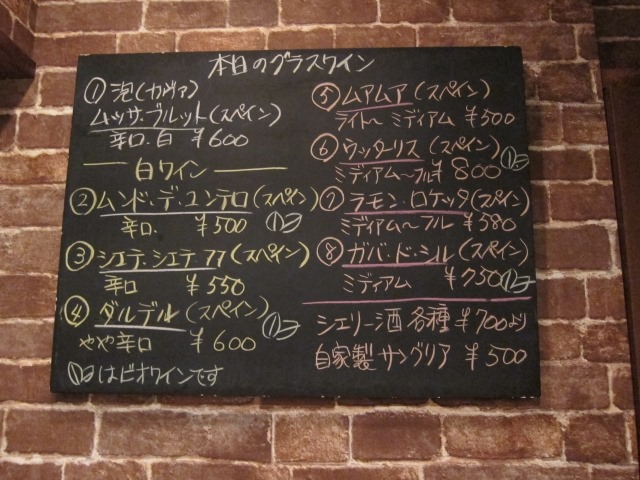 本日のグラスワイン
① 泡(カヴァ)
ムッサ・ブルット(スペイン)
辛口.白 ¥600
白ワイン
② ムンド・デ・ユンテロ(スペイン)
辛口. ¥500
③ シエテ・シエテ 77 (スペイン)
辛口 ¥550
④ ダルデル (スペイン)
やや辛口 ¥600
はビオワインです
⑤ ムアムア (スペイン)
ライト〜ミディアム ¥500
⑥ ウッターリス (スペイン)
ミディアム〜フル ¥800
⑦ ラモン・ロケッタ(スペイン)
ミディアム〜フル ¥580
⑧ ガバ・ド・シル (スペイン)
ミディアム ¥750
シェリー酒 各種 ¥700より
自家製 サングリア ¥500